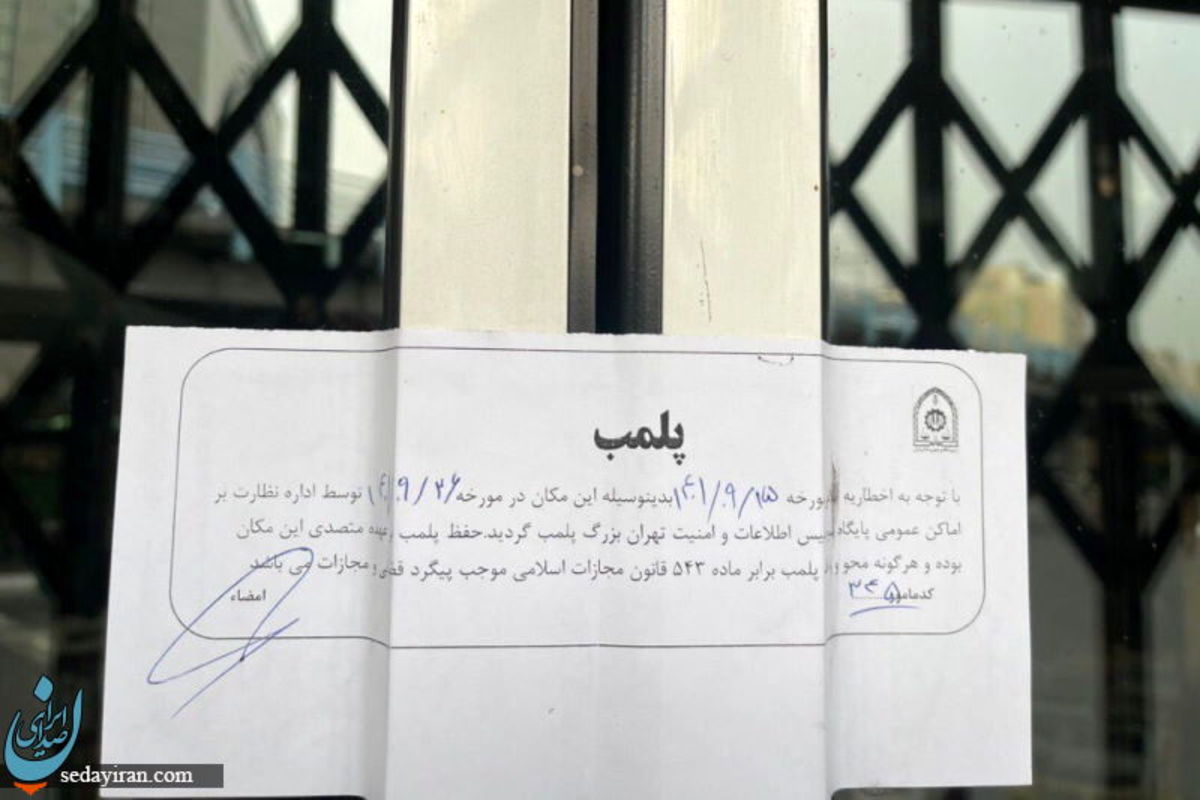 پلمب
با توجه به اخطاریه مورخه ۱۴۰۱/۰۹/۱۵ بدینوسیله این مکان در مورخه ۱۴۰۱/۰۹/۲۶ توسط اداره نظارت بر
اماکن عمومی پایگاه پلیس اطلاعات و امنیت تهران بزرگ پلمب گردید.حفظ پلمب بعهده متصدی این مکان
بوده و هرگونه محو و پلمب برابر ماده ۵۴۳ قانون مجازات اسلامی موجب پیگرد قضی و مجازات می باشد
کدمامور ۳۴۵
امضاء
صدای ایران
sedayiran.com